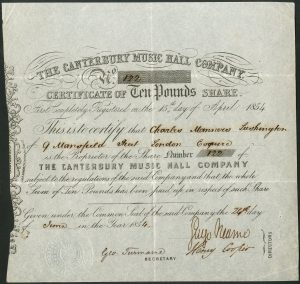 THE CANTERBURY MUSIC HALL COMPANY.
No. 122
CERTIFICATE OF Ten Pounds SHARE.
First Completely Registered on the 15th day of April 1854
This is to certify that Charles Manners Lushington
of 9 Mansfield Street London Esquire
is the Proprietor of the Share Number 122 of
THE CANTERBURY MUSIC HALL COMPANY
subject to the regulations of the said Company and that the whole
Sum of Ten Pounds has been paid up in respect of such Share
Given under the Common Seal of the said Company the 24th day
June in the Year 1854.
Geo Furmane
SECRETARY
Henry Cooper
DIRECTORS